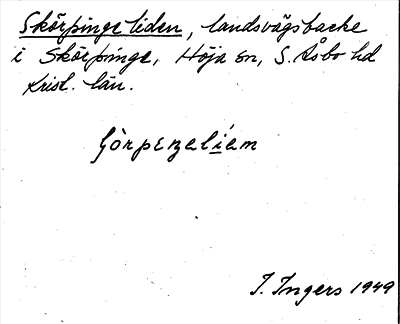 Skörpinge liden, landsvägsbacke
i Skörpinge, Höja sn, S. Åsbo hd
Krist. län.
I. Ingers 1949